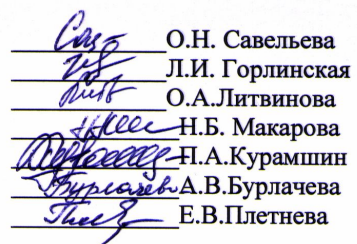 О.Н. Савельева
Л.И. Горлинская
О.А.Литвинова
Н.Б. Макарова
П.А.Курамшин
Бурлачева А.В.Бурлачева
Е.В.Плетнева